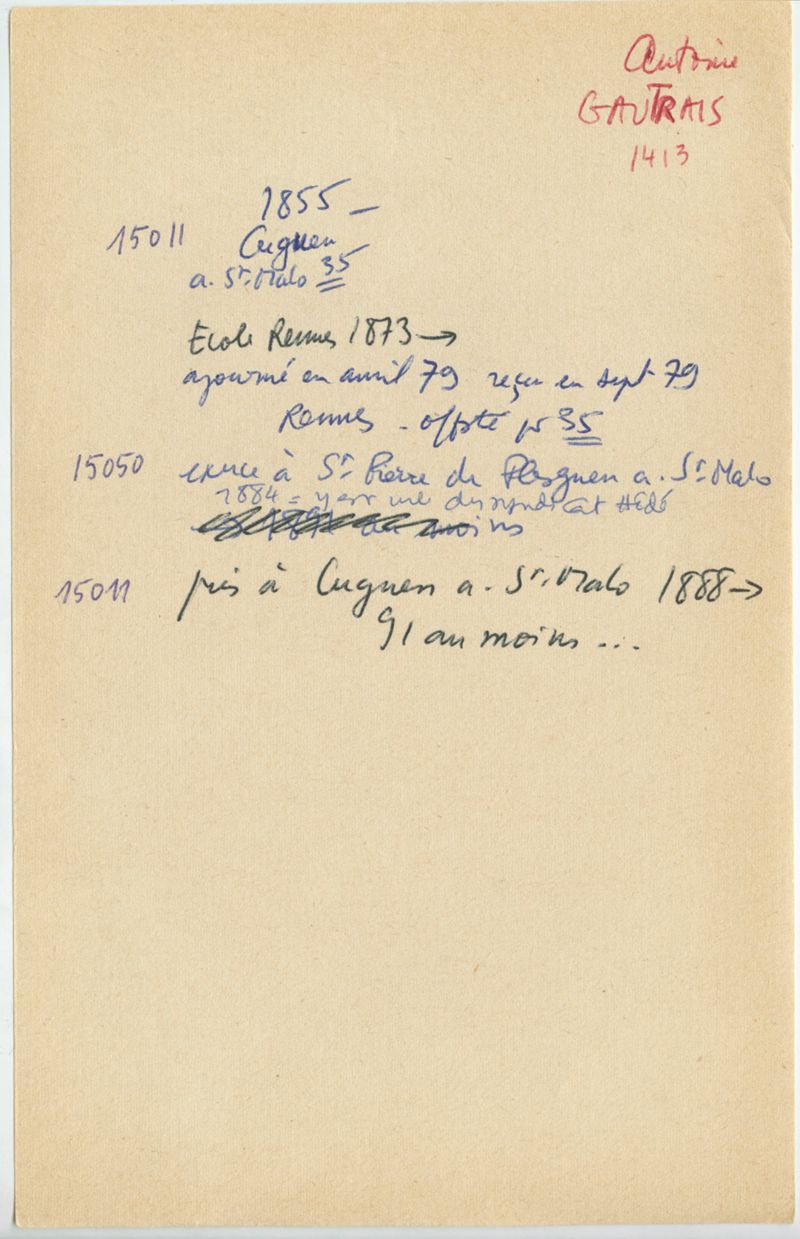 Antoine
GAUTRAIS
1413
1855 –
15011 Cuguen
a. St. Malo 35
Ecole Rennes 1873 →
ajourné en avril 79 reçu en sept 79
Rennes - offste pr 35
15050 exerce à St Pierre de Plesguen a. St Malo
1884 = y est du syndicat Hédé
au moins
15011 puis à Cuguen a. St. Malo 1888 →
91 au moins...